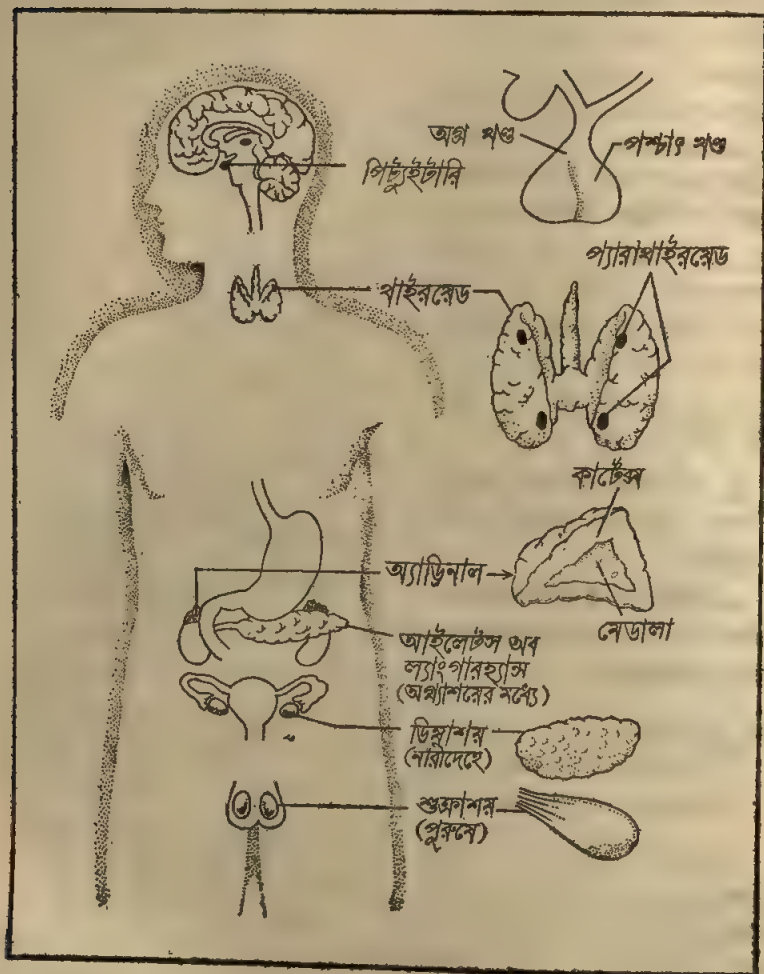 অগ্র খণ্ড
পশ্চাৎ খণ্ড
পিট্যুইটারি
প্যারাথাইরয়েড
থাইরয়েড
কর্টেক্স
অ্যাড্রিনাল
মেডালা
আইলেটস অব
ল্যাংগারহ্যান্স
(অগ্ন্যাশয়ের মধ্যে)
ডিম্বাশয়
(নারীদেহে)
শুক্রাশয়
(পুরুষে)